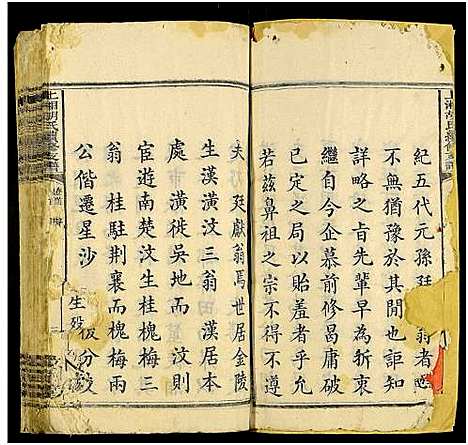 上湘胡氏續修支譜
紀五代元孫廷翁者
不無猶豫於其閒也詎知
詳略之旨先輩早為斨衷
繼自今企慕前修曷庸破
已定之局以貽羞者乎允
若茲鼻祖之宗不得不遵
夫廷獻翁焉世居金陵
生漢潢汶三翁漢居本
處潢徙吳地而汶則
宦遊南楚汶生桂槐梅三
翁桂駐荆襄而槐梅兩
公偕遷星沙
生殁
仮分歿
上湘胡氏續修支譜
三